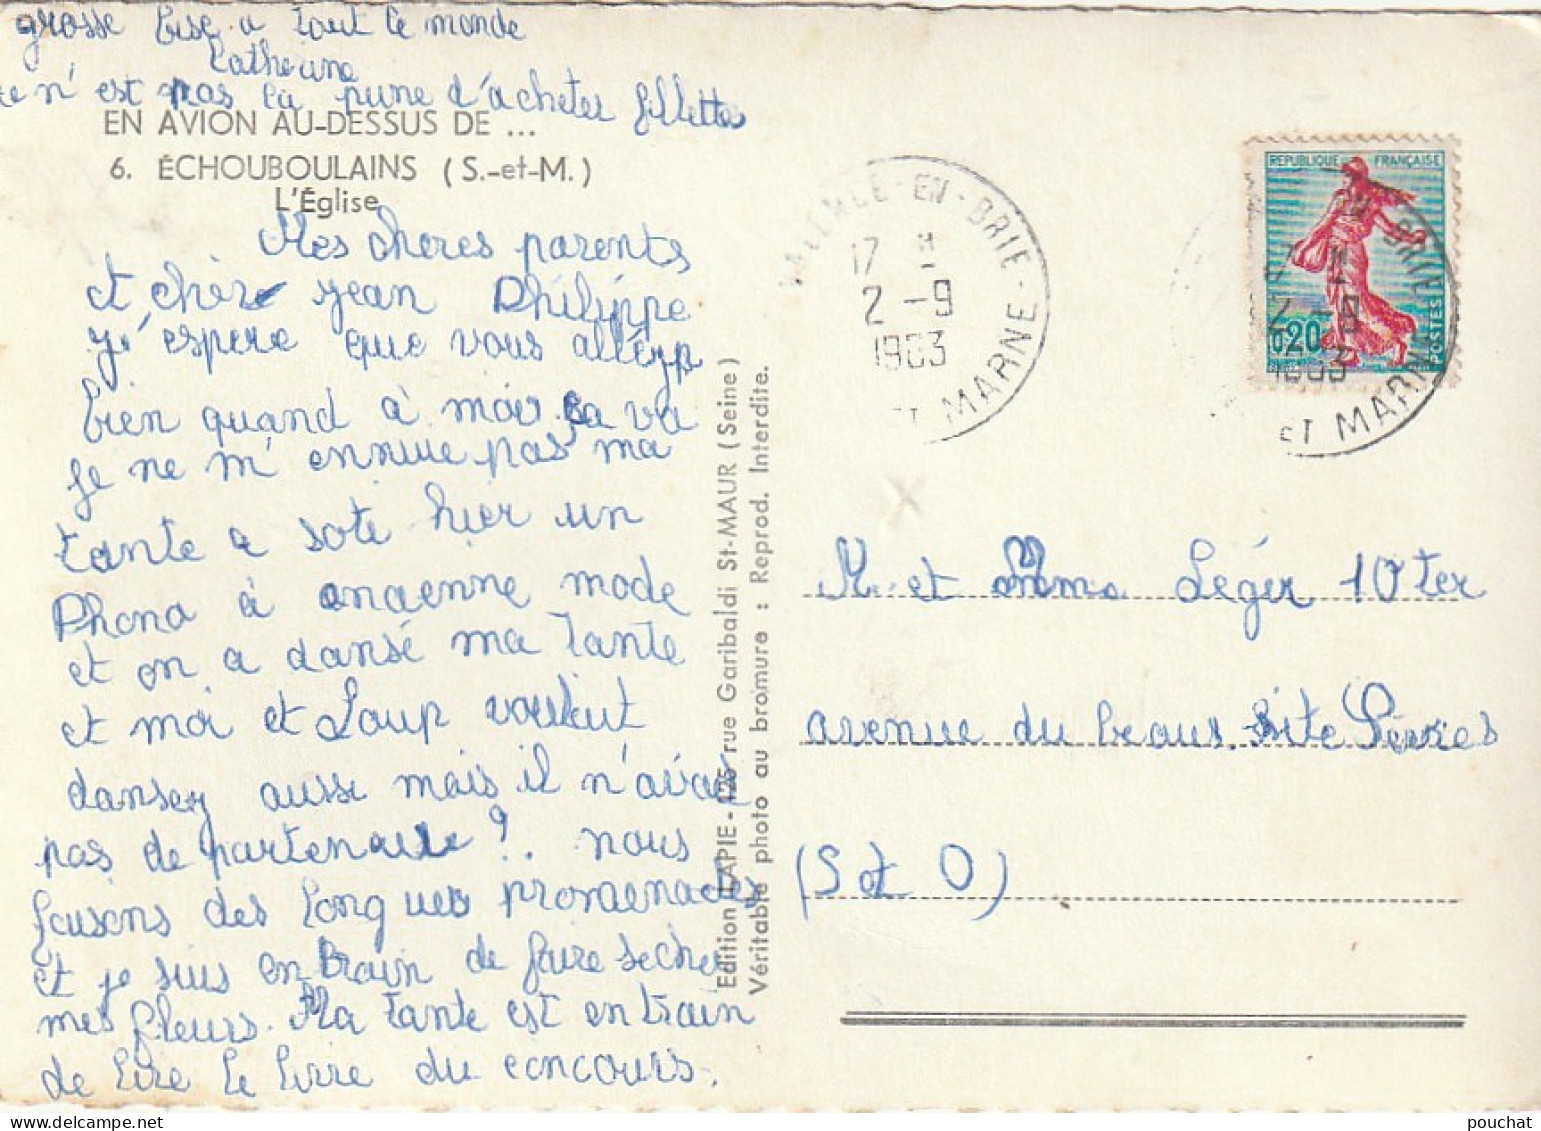 grosse bise a tout le monde
Catherine
ce n'est pas la peine d'acheter fillettes
EN AVION AU-DESSUS DE ...
6. ÉCHOUBOULAINS (S.-et-M.)
L'Église
Mes cheres parents
et chèr jean Philippe
j'éspere que vous allez
bien quand à moi ça va
je ne m'ennuie pas ma
tante a soté hier un
Phono à ancienne mode
et on a dansé ma tante
et moi et Loup voulait
danser aussi mais il n'avait
pas de partenaire ?.. nous
faisons des longues promenades
et je suis en train de faire secher
mes fleurs. Ma tante est en train
de lire le livre du concours.
Edition LAPIE - 125 rue Garibaldi St-MAUR (Seine)
Véritable photo au bromure : Reprod. Interdite.
VALENCE-EN-BRIE
17 H
2 -9
1963
ET MARNE
REPUBLIQUE FRANÇAISE
0,20
POSTES
BRIE
H
2 -9
1963
ET MARNE
M. et Mme Léger 10 ter
avenue du beau Site Sèvres
(S et O)
pouchat